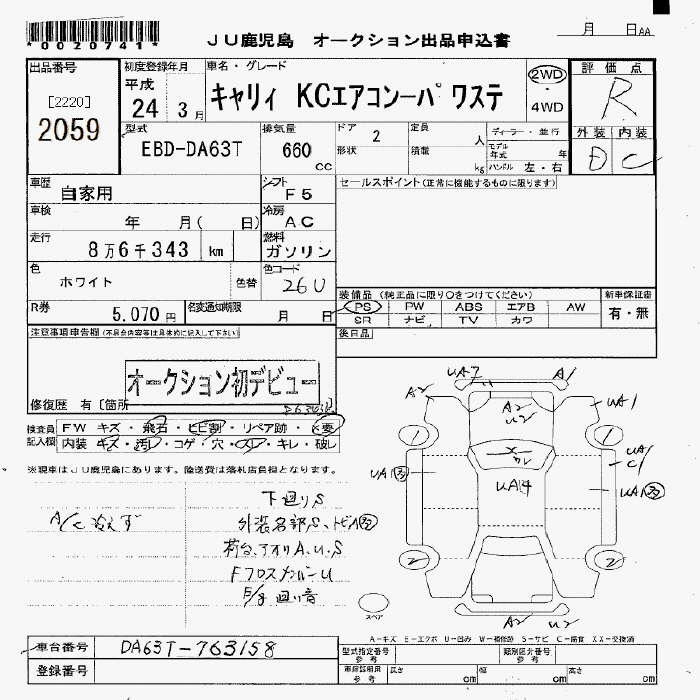 *0020741*
JU鹿児島 オークション出品申込書
月 日AA
出品番号
[2220]
2059
初度登録年月
平成
24 3月
車名・グレード
キャリィ KCエアコンーパ ワステ
2WD
・
4WD
評価点
R
外装 内装
D C
型式
EBD-DA63T
排気量
660
cc
ドア 2
形状
定員 人
積載 kg
ディーラー・並行
モデル年式 年
ハンドル 左・右
車歴
自家用
シフト
F5
セールスポイント(正常に機能するものに限ります)
車検
年 月( 日)
冷房
AC
走行
8万6千343 km
燃料
ガソリン
色
ホワイト
色替
色コード
26U
R券
5,070円
名変通知期限
月 日
装備品(純正品に限り○をつけてください)
PS PW ABS エアB AW
SR ナビ TV カワ
新車保証書
有・無
後日品
注意事項申告欄(不具合内容等は具体的に記入して下さい)
オークション初デビュー
修復歴 有〔箇所
検査員記入欄
FW キズ・飛石・ヒビ割・リペア跡・×要
内装 キズ・汚れ・コゲ・穴・スレ・キレ・破レ
※現車はJU鹿児島にあります。陸送費は落札店負担となります。
A/C冷えず
下廻りS
外装各部S、トビA
荷台、アオリA.U.S
Fフロスメンバーu
廻り音
UA7
A1
A2
A2
U2
UA1
1
1
UA
UA4
UA1
C1
UA
2
2
A2
U2
スペア
A-キズ E-エクボ U-凹み W-補修跡 S-サビ C-腐食 XX-交換済
車台番号
DA63T-763158
登録番号
型式指定番号
参考
類別区分番号
参考
車庫証明用
参考
長さ cm
幅 cm
高さ cm